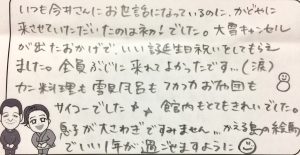 いつも今井さんにお世話になっているのに、かどやに
来させていただいたのは初!でした。大雪キャンセル
が出たおかげで、いい誕生日祝いとしてもらえ
ました。全員ぶじに来れてよかったです…(涙)
カニ料理も雪見風呂もフカフカお布団も
サイコーでした 館内もとてもきれいでした。
息子が大さわぎですみません…かえる島の絵馬
でいい1年が過ごせますように